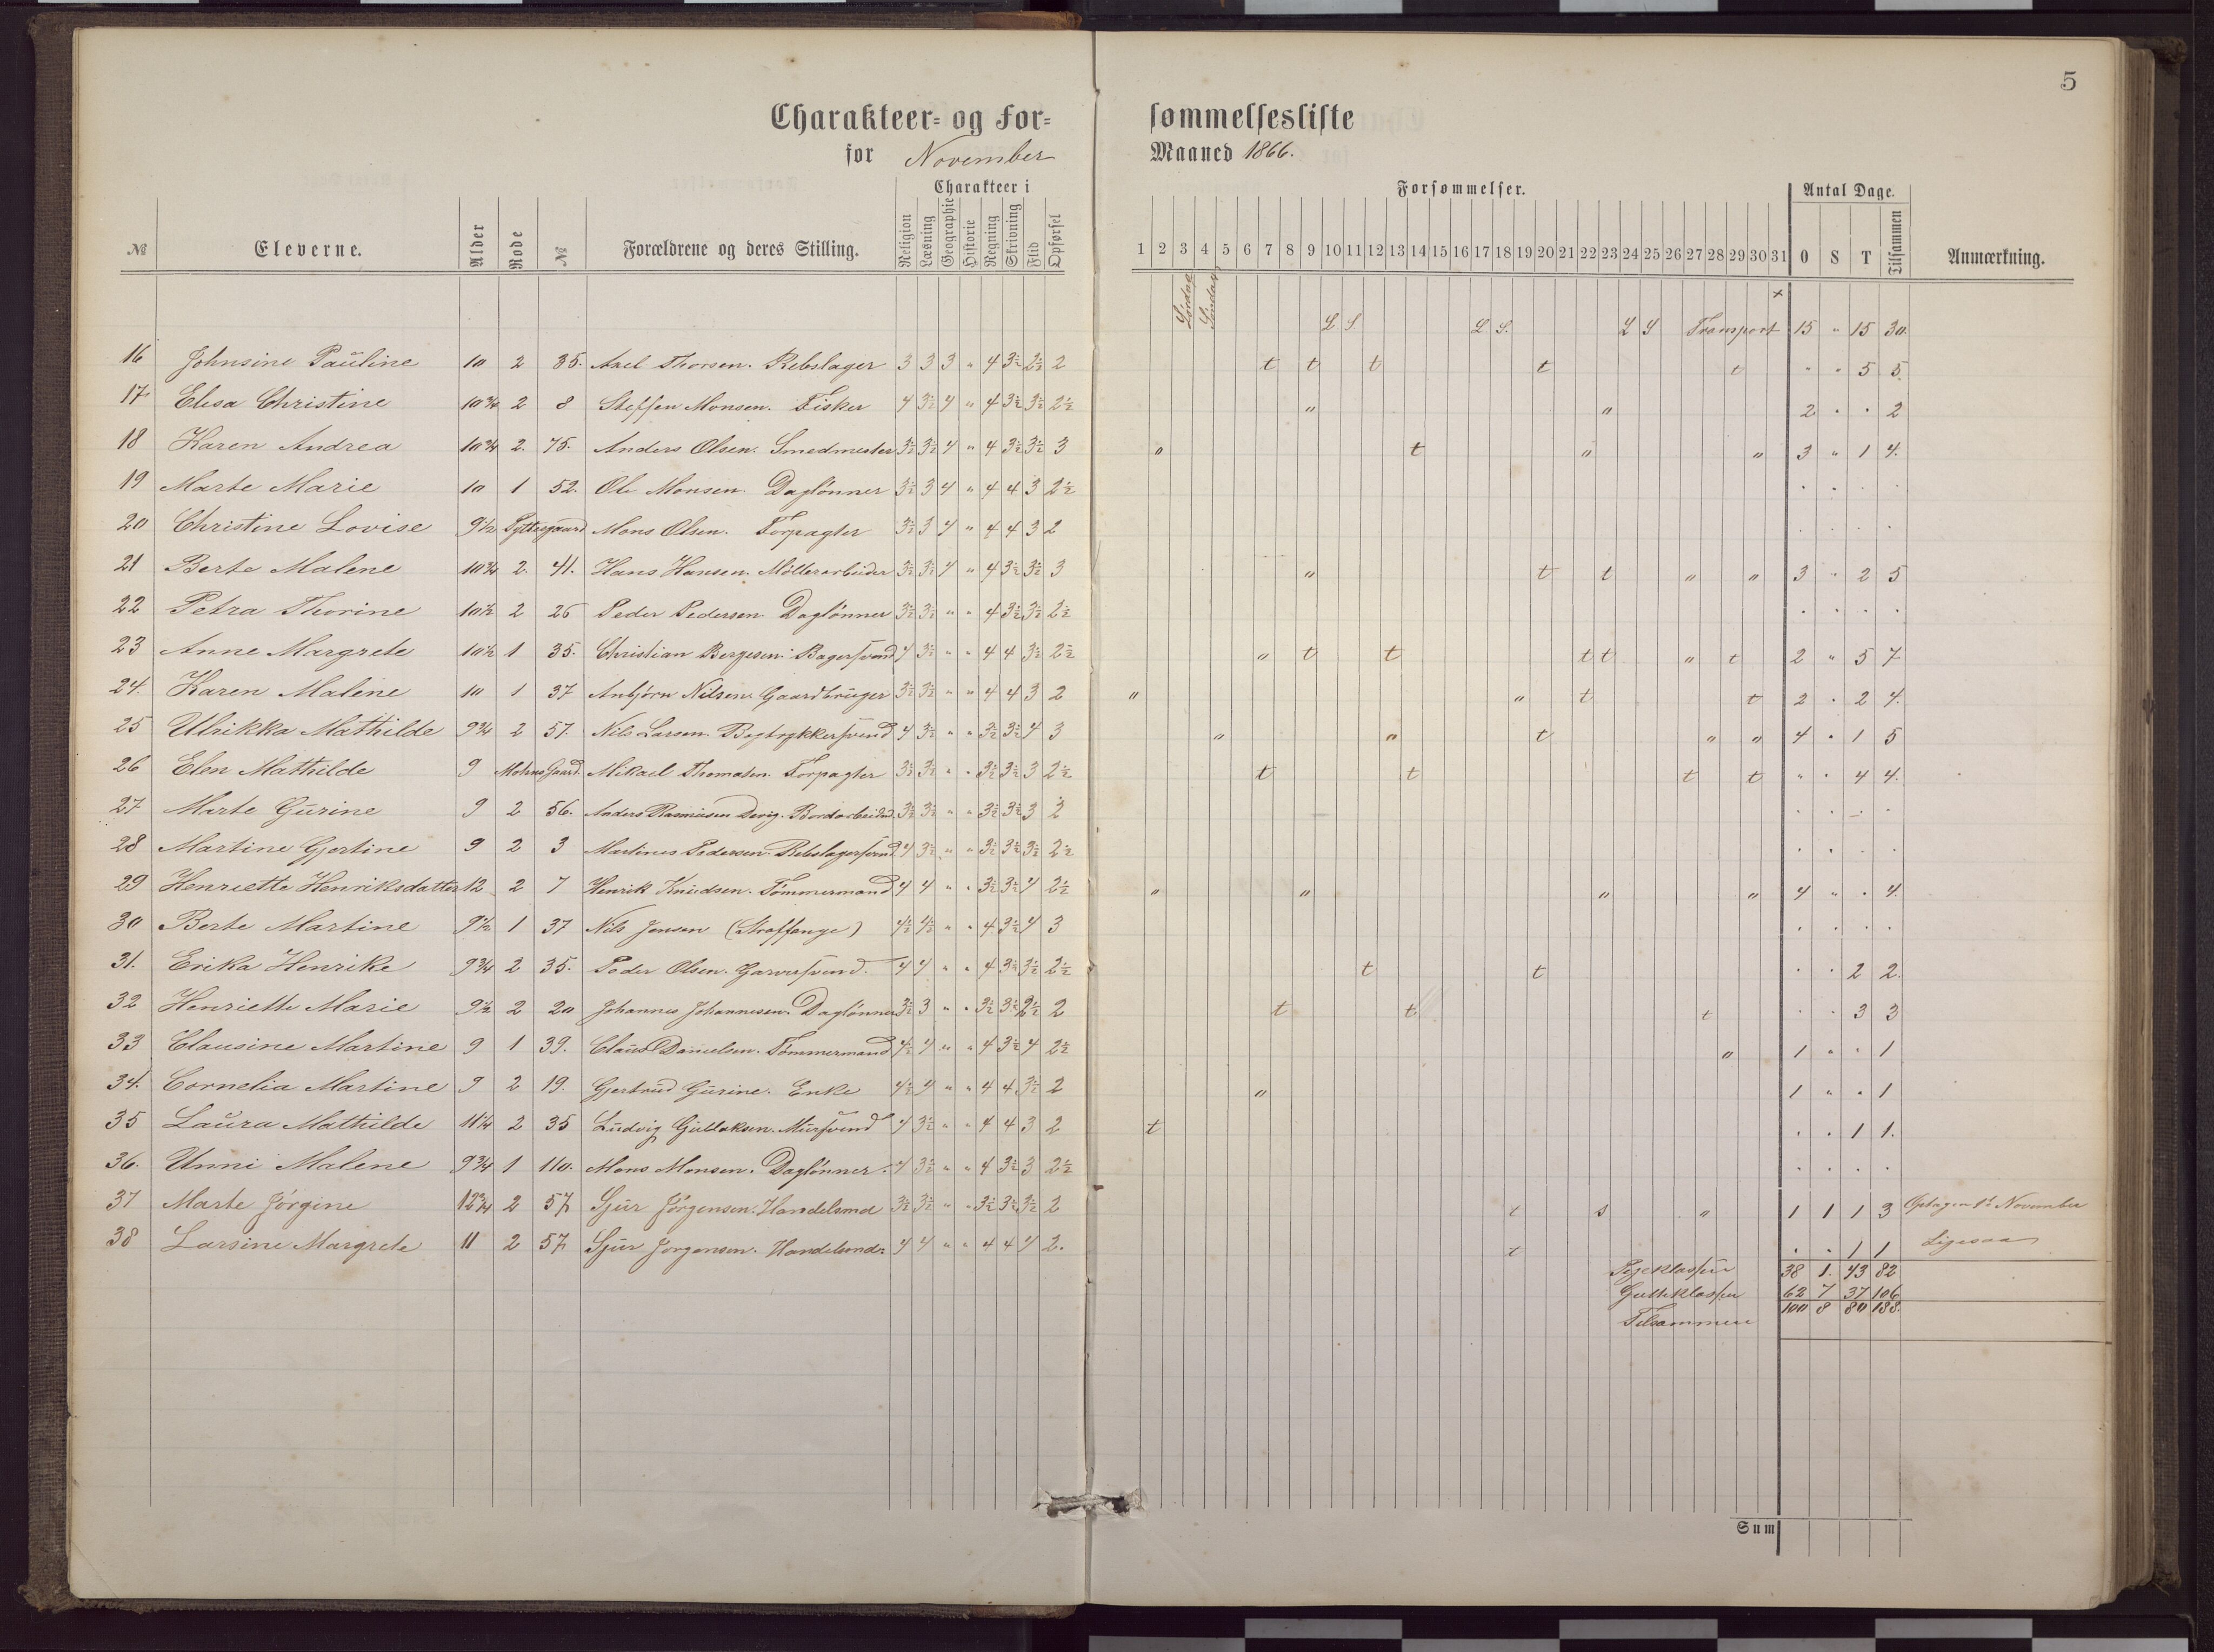 5
Charakteer- og For- sømmelsesliste
for November Maaned 1866.
Charakteer i Forsømmelser. Antal Dage.
№ Eleverne. Alder Rode № Forældrene og deres Stilling. Religion Læsning Geographie Historie Regning Skrivning Flid Opførsel 1 2 3 4 5 6 7 8 9 10 11 12 13 14 15 16 17 18 19 20 21 22 23 24 25 26 27 28 29 30 31 O S T Tilsammen Anmærkning.
Lørdag Søndag x
L S L S. L S Transport 15 " 15 30.
16 Johnsine Pauline 10 2 35. Axel Thorsen. Rebslager 3 3 3 " 4 3½ 2½ 2 t t t t t " " 5 5.
17 Elisa Christine 10¾ 2 8 Steffen Monsen. Fisker 4 3½ 4 " 4 3½ 3½ 2½ " " 2 . . 2
18 Karen Andrea 10¾ 2. 75. Anders Olsen. Smedmester 3½ 3½ 4 " 4 3½ 3½ 3 " t " " 3 " 1 4.
19 Marte Marie 10 1 52. Ole Monsen. Daglönner 3½ 3 4 " 4 4 3 2½ . . . .
20 Christine Lovise 9½ Pyttesgaard Mons Olsen. Forpagter 3½ 3 4 " 4 4 3 2 . . . .
21 Berte Malene 10¾ 2. 41. Hans Hansen. Möllerarbeider 3½ 3½ 4 " 4 3½ 3½ 3 " t t " " 3 " 2 5
22 Petra Thorine 10½ 2 26 Peder Pedersen. Daglönner 3½ 3½ " " 4 3½ 3½ 2½ . . . .
23 Anne Margrete 10½ 1 35. Christian Bergesen. Bagersvend 4 3½ " " 4 4 3½ 2½ " t t t t " t 2 " 5 7
24. Karen Maline 10 1 37 Anbjörn Nilsen. Gaardbruger 3½ 3½ " " 4 4 3 2 " " t t 2 . 2 4.
25 Ulrikka Mathilde 9¾ 2 57. Nils Larsen. Bogtrykkersvend 4 3½ " " 3½ 3½ 4 3 " " t " " 4 . 1 5
26 Elen Mathilde 9 Mohns Gaard. Mikael Thomasen. Forpagter 3½ 3½ " " 3½ 3½ 3 2½ t t t t " " 4 4.
27 Marte Gurine 9 2 56. Anders Rasmusen Devig. Bordarbeider. 3½ 3½ " " 3½ 3½ 3 2 . . . .
28 Martine Gjertine 9 2 3 Martinus Pedersen. Rebslagersvend 4 3½ " " 3½ 3½ 3½ 2½ . . . .
29 Henriette Henriksdatter 12 2 7 Henrik Knudsen. Tömmermand 4 4 " " 3½ 3½ 4 2½ " " " " 4 " . 4.
30 Berte Martine 9½ 1 37 Nils Jensen (Straffange) 4½ 4½ " " 4 3½ 4 3 . . . .
31. Erika Henrike 9¾ 2 35. Peder Olsen. Garversvend. 4 4 " " 4 3½ 3½ 2½ t t . . 2 2.
32 Henriette Marie 9½ 2 20 Johannes Johannesen. Daglönner 3½ 3 " " 3½ 3½ 2½ 2 t t t . . 3 3
33 Clausine Martine 9 1 39. Claus Danielsen. Tömmermand 4½ 4 " " 4 3½ 4 2½ " 1 " " 1
34. Cornelia Martine 9 2 19. Gjertrud Gurine. Enke 4½ 4 " " 4 4 3½ 2 " 1 " " 1
35 Laura Mathilde 11¼ 2 35 Ludvig Gullaksen. Mursvend 4 3½ " " 4 4 3 2 t . . 1 1.
36. Unni Malene 9¾ 1 110. Mons Monsen. Daglönner. 4 3½ " " 4 3½ 3 2½ . . . .
37 Marte Jörgine 12¾ 2 57 Sjur Jörgensen. Handelsmd 3½ 3½ " " 3½ 3½ 3½ 2 t s " 1 1 1 3 Optagen November
38 Larsine Margrete 11 2 57 Sjur Jorgensen. Handelsmd. 4 4 " " 4 4 4 2. t . . 1 1 Ligesaa
Pigeklassen 38 1. 43 82
Gutteklassen 62 7 37 106
Tilsammen 100 8 80 188.
Sum